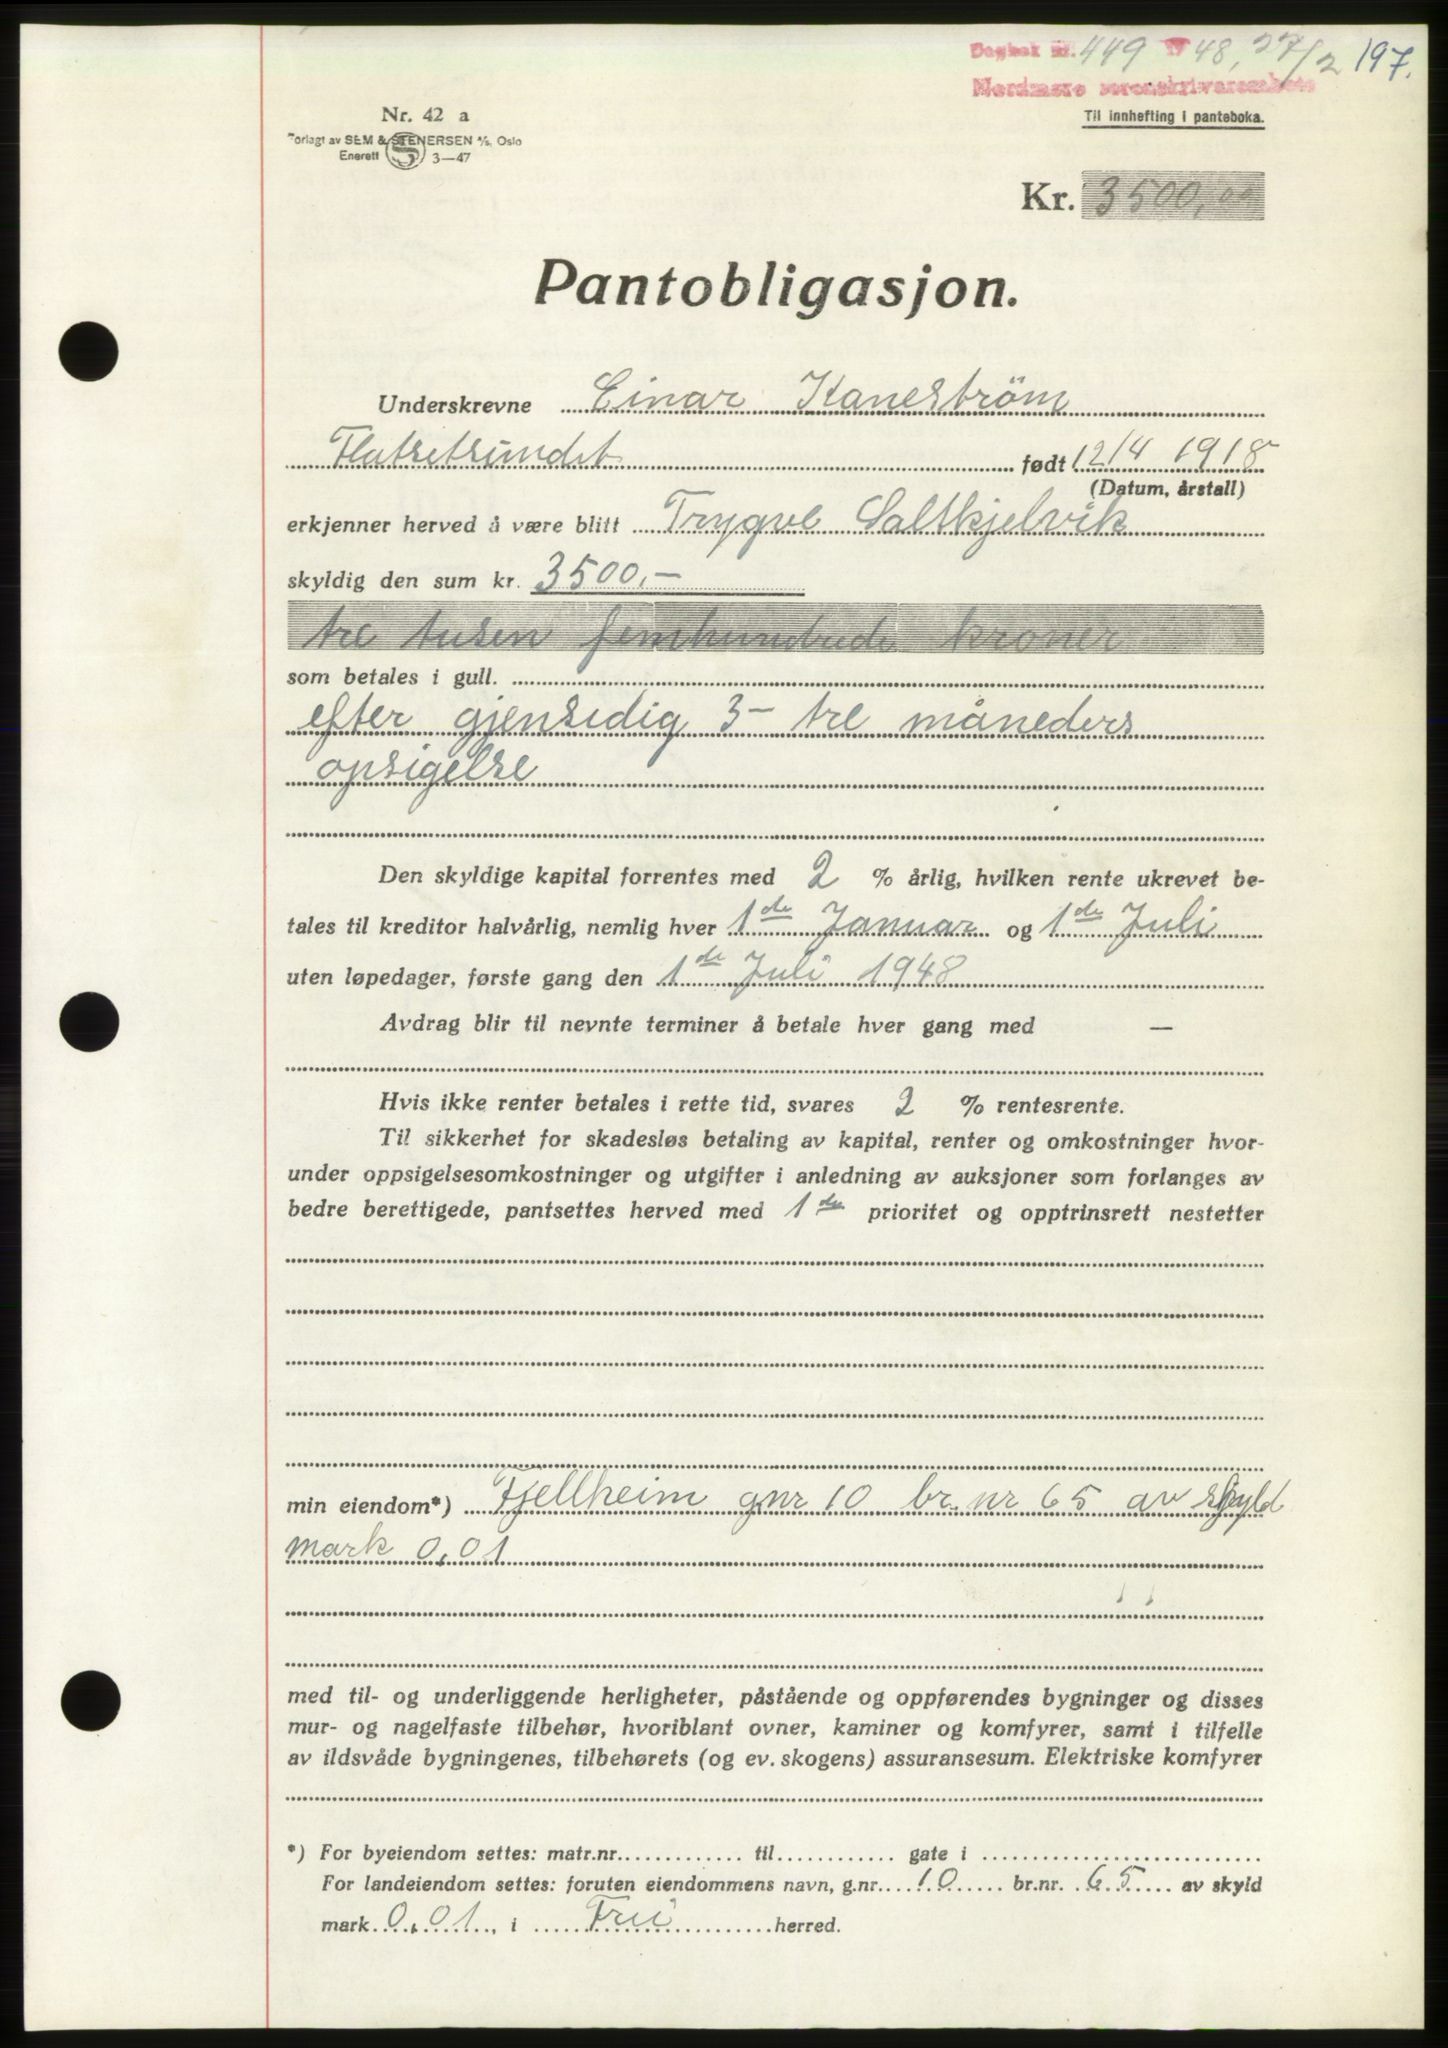 Dagbok nr. 449 19 48, 27/2 197.
Nordmøre sorenskriverembete
Nr. 42 a
Til innhefting i panteboka.
Forlagt av SEM & STENERSEN A/S, Oslo
Enerett S 3—47
Kr. 3500,00
Pantobligasjon.
Underskrevne Einar Kanestrøm
Flatsetsundet født 12/4 1918
(Datum, årstall)
erkjenner herved å være blitt Trygve Saltkjelvik
skyldig den sum kr. 3500,—
tre tusen femhundrede kroner
som betales i gull.
efter gjensidig 3— tre måneders
opsigelse
Den skyldige kapital forrentes med 2 % årlig, hvilken rente ukrevet be-
tales til kreditor halvårlig, nemlig hver 1de Januar og 1de Juli
uten løpedager, første gang den 1de Juli 1948
Avdrag blir til nevnte terminer å betale hver gang med —
Hvis ikke renter betales i rette tid, svares 2 % rentesrente.
Til sikkerhet for skadesløs betaling av kapital, renter og omkostninger hvor-
under oppsigelsesomkostninger og utgifter i anledning av auksjoner som forlanges av
bedre berettigede, pantsettes herved med 1de prioritet og opptrinsrett nestetter
min eiendom*) Fjellheim gnr 10 br. nr 65 av skyld
mark 0,01
med til- og underliggende herligheter, påstående og oppførendes bygninger og disses
mur- og nagelfaste tilbehør, hvoriblant ovner, kaminer og komfyrer, samt i tilfelle
av ildsvåde bygningenes, tilbehørets (og ev. skogens) assuransesum. Elektriske komfyrer
*) For byeiendom settes: matr.nr. til gate i
For landeiendom settes: foruten eiendommens navn, g.nr. 10 br.nr. 65 av skyld
mark 0,01, i Frei herred.